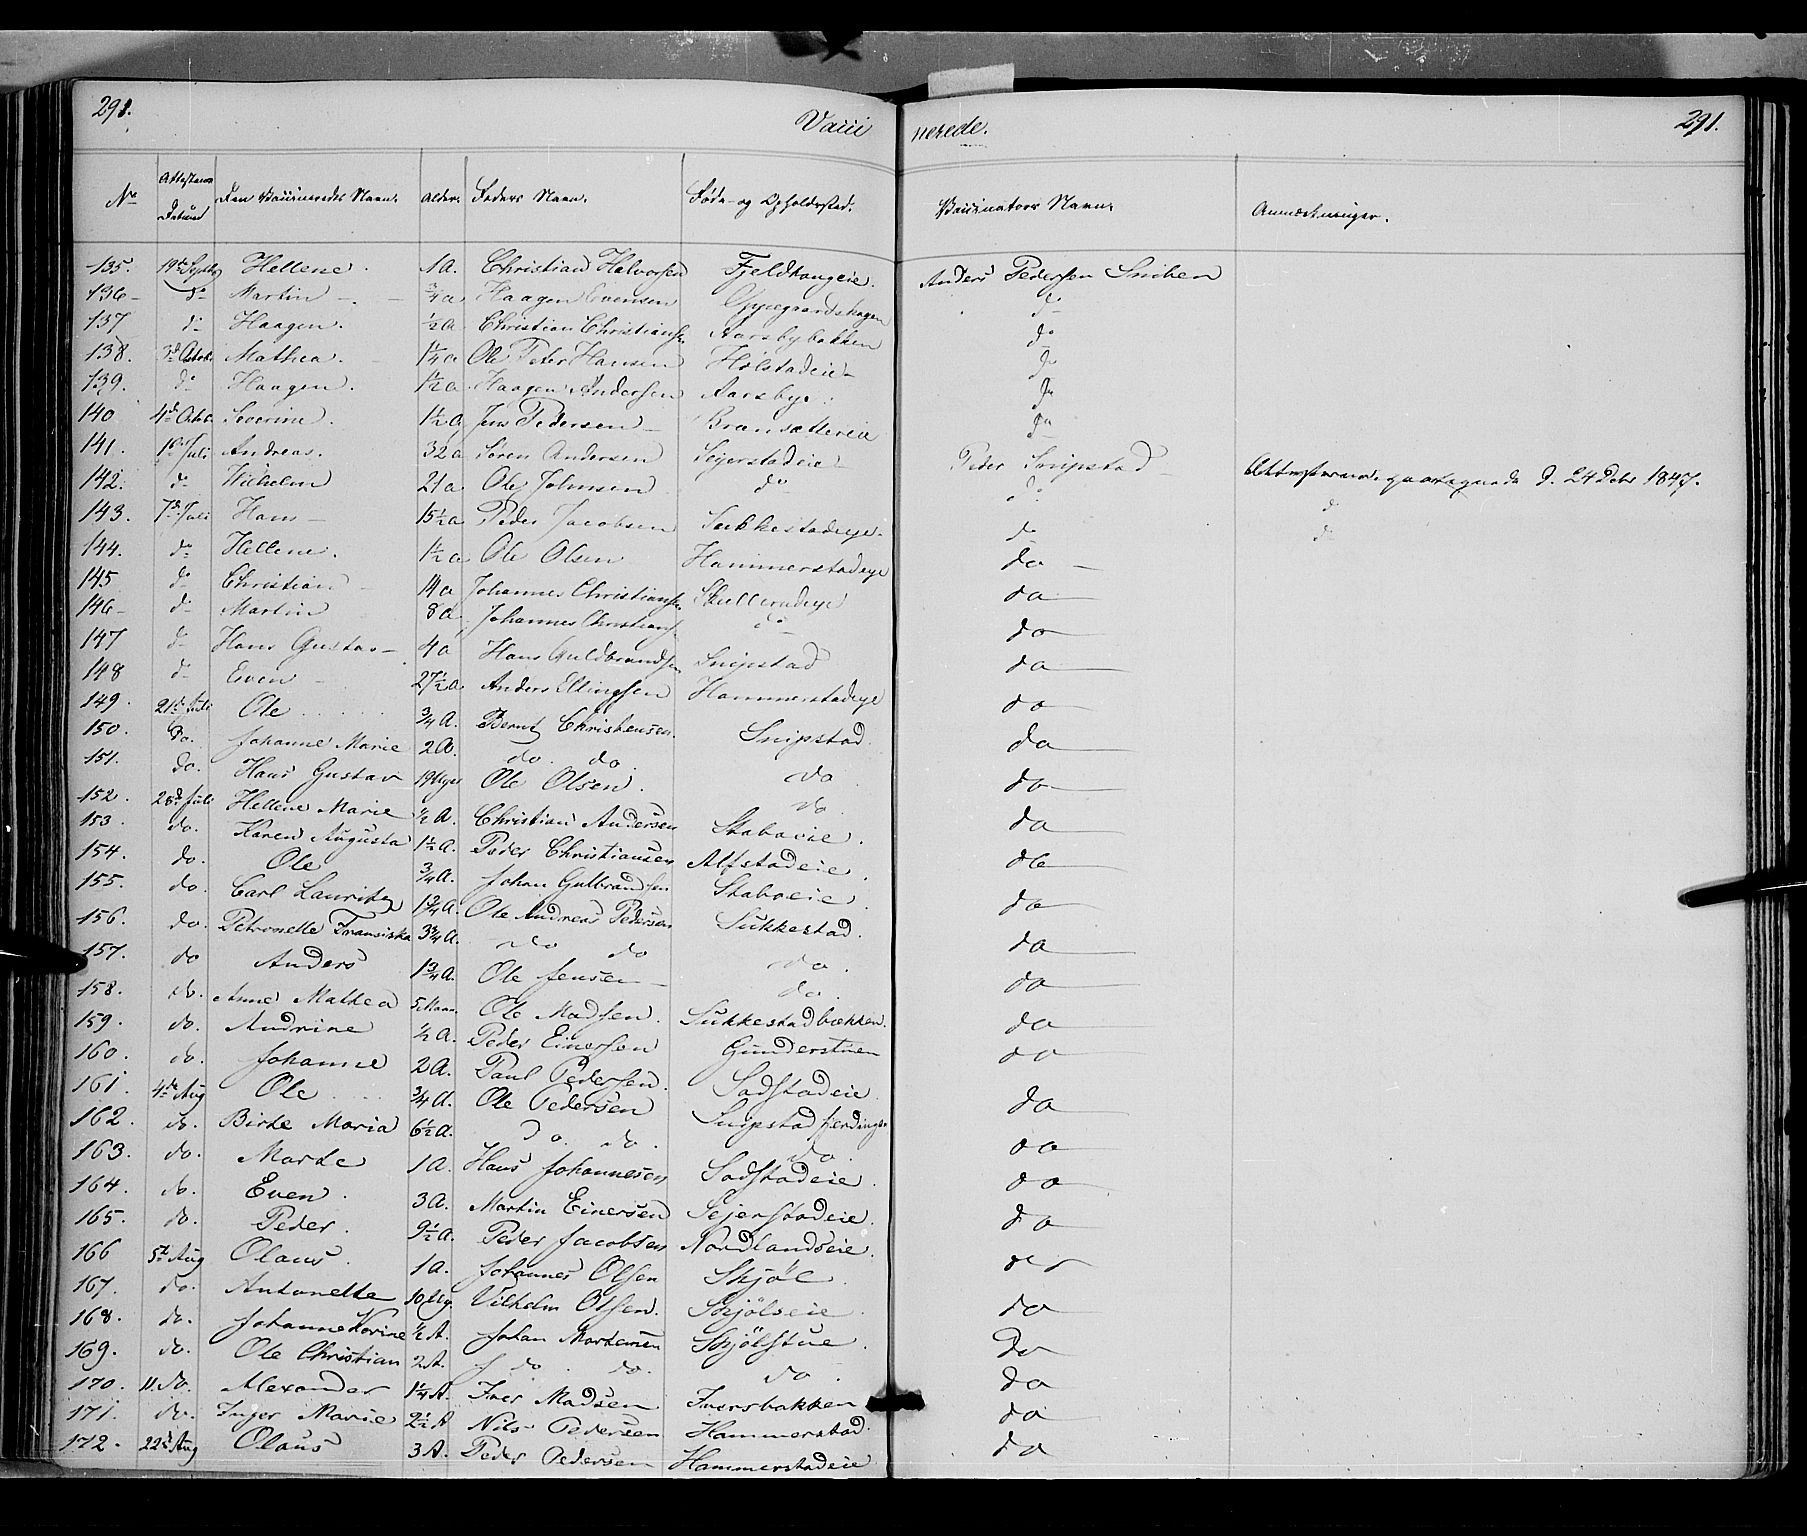 291. Vacci nerede. 291.
No Attestens Datum Den Vaccineredes Navn. Alder. Faders Navn. Føde- og Opholdssted. Vaccinators Navn. Anmærkninger.
135. 19de Septbr Hellene. 1a. Christian Halvorsen Fjeldhaugeie. Anders Pedersen Sniken
136- do Martin - 3/4a Haagen Evensen Oppegaardshagen do
137 do Haagen. 1/2a Christian Christians. Aarsbybakken do
138. 3d Octob. Mathea. 1 1/4a Ole Peter Hansen Holstadeie- do
139. do Haagen. 1 1/2a Haagen Andersen Aarsbye. do
140 4d Octob. Severine. 1 1/2a Jens Pedersen - Brænsætereie do
141. 1st Juli Andreas. 32a Søren Andersen Sejerstadeie- Peder Snipstad - Attesten modtaget d. 24 Debr 1847.
142. do Wilhelm 21a Ole Johnsen do do do
143. 7d Juli Hans - 15 1/2a Peder Jacobsen Sukkestadeye- do do
144. do Hellene. 1 1/2a Ole Olsen Hammerstadeye do -
145 do Christian - 14a Johannes Christians. Skullerudeye do
146- do Martin 8a Johannes Christians. do do
147 do Hans Gustav- 4a Hans Guldbrandsen Snipstad do
148 do Even - 27 1/2a Anders Ellingsen Hammerstadeye do
149. 21d Juli Ole 3/4 A. Bernt Christensen. Snipstad. do
150. do. Johanne Marie 2 A. do. do. do do
151. do. Hans Gustav 19 Uger Ole Olsen. do. do
152. 28d Juli Hellene Marie 1/2 A. Christian Andersen Staboeie. do
153. do. Karen Augusta 1 1/2 A. Peder Christiansen Alfstadeie. do
154. do. Ole 3/4 A. Johan Gulbrandsen Staboeie. do
155. do. Carl Lauritz 1 3/4 A. Ole Andreas Pedersen Sukkestad. do
156. do. Petronelle Fransiska 3 3/4 A. do do do. do
157. do Anders 1 3/4 A. Ole Jensen - do. do
158. do. Anne Mathea 5 Maan. Ole Madsen. Sukkestadbækken. do
159. do. Andrine 1/2 A. Peder Einersen Gunderstuen do
160. do. Johanne 2 A. Paul Pedersen. Sadstadeie. do
161. 4de Aug Ole 3/4 A. Ole Pedersen Snipstad do
162. do. Birte Maria 6 1/2 A. do. do. do. do
163. do. Marte 1 A. Hans Johannesen Sadstadeie. do
164. do. Even. 3 A. Martin Einersen Sejerstadeie. do
165. do. Peder. 9 1/2 A. Peder Jacobsen Nordlandseie. do
166 5te Aug Olaus. 1 A. Johannes Olsen Skjøl. do
167. do. Antonette 10 Ug. Vilhelm Olsen. Skjølseie. do
168. do. Johanne Karine 1/2 A. Johan Mortensen Skjølstue. do
169. do. Ole Christian 2 A. do. do. do. do
170. 11. do. Alexander 1 1/4 A. Iver Madsen Iversbakken do
171. do. Inger Marie 2 1/2 A Nils Pedersen Hammerstad. do
172. 22d Aug Olaus 3 A. Peder Pedersen Hammerstadeie do